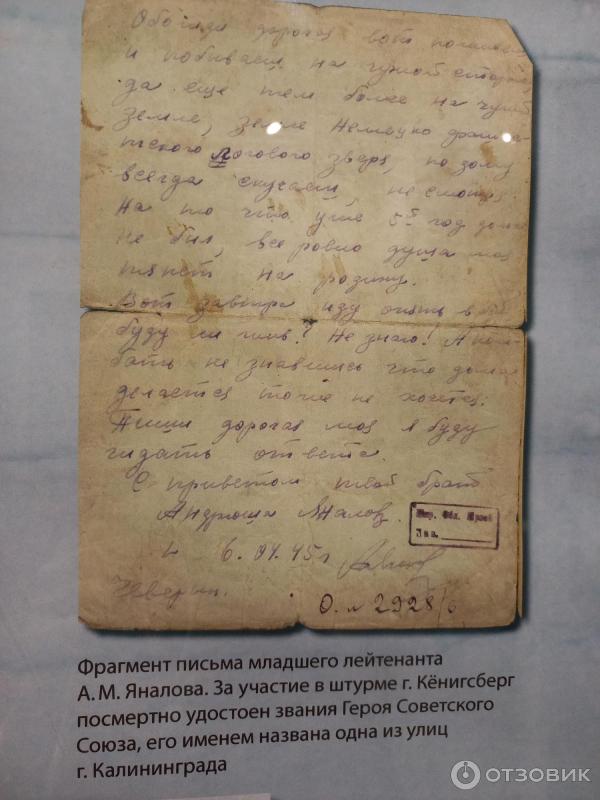 дорогая вот
и побываеш на чужой
да еще тем более на чуж
земле, земле Немецко
логового зверя, по
всегда скучаеш, не смотря
на то что уже 5й год дома
не был, все ровно душа моя
тянет на родину.
Вот завтра иду опять в бой
буду ли жив? Не знаю! А
не знавшись что дома
делается тоже не хочется.
Пиши дорогая моя я буду
ждать ответа.
С приветом твой брат
Андрюша Яналов.
6.04.45г
О. м 2928/6
Обл. Музей
Инв.
Фрагмент письма младшего лейтенанта
А. М. Яналова. За участие в штурме г. Кёнигсберг
посмертно удостоен звания Героя Советского
Союза, его именем названа одна из улиц
г. Калининграда
ОТЗОВИК